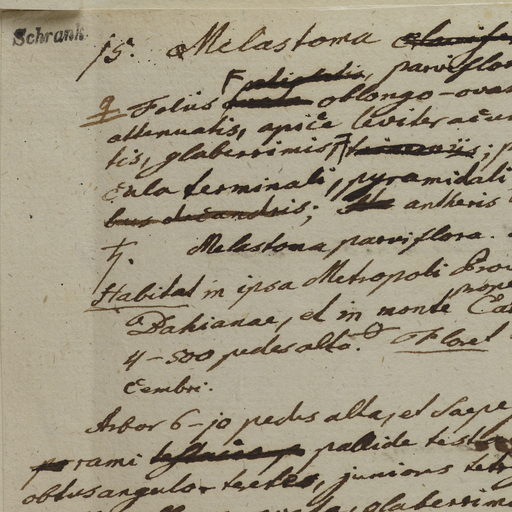 Schrank
15. Melastoma
parviflor
Foliis oblongo-ovat
attenuatis, apice leviter acum
tis, glaberrimis, trinerviis; p
cula terminali, pyramidali
bus decandris; antheris
Melastoma parviflora.
Habitat in ipsa Metropoli Prov
Bahianae, et in monte, prope Ca
4-500 pedes alto. Floret
cembri.
Arbor 6-10 pedes alta, et saepe
rami pallide test
obtusangulo teretes, juniores tetr
glaberrim